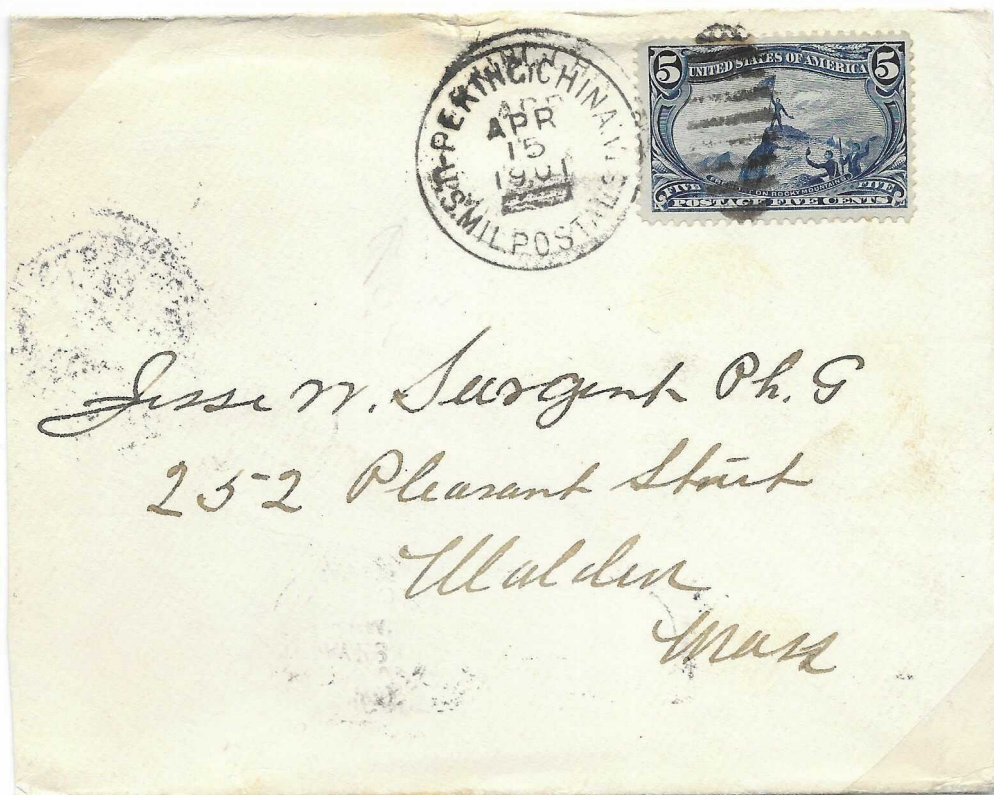 PEKING, CHINA.
U.S. MIL. POSTAL S
APR
15
1901
5 UNITED STATES OF AMERICA 5
FIVE ON ROCKY MOUNTAINS FIVE
POSTAGE FIVE CENTS
Jesse W. Sargent Ph. G
252 Pleasant Street
Malden
Mass